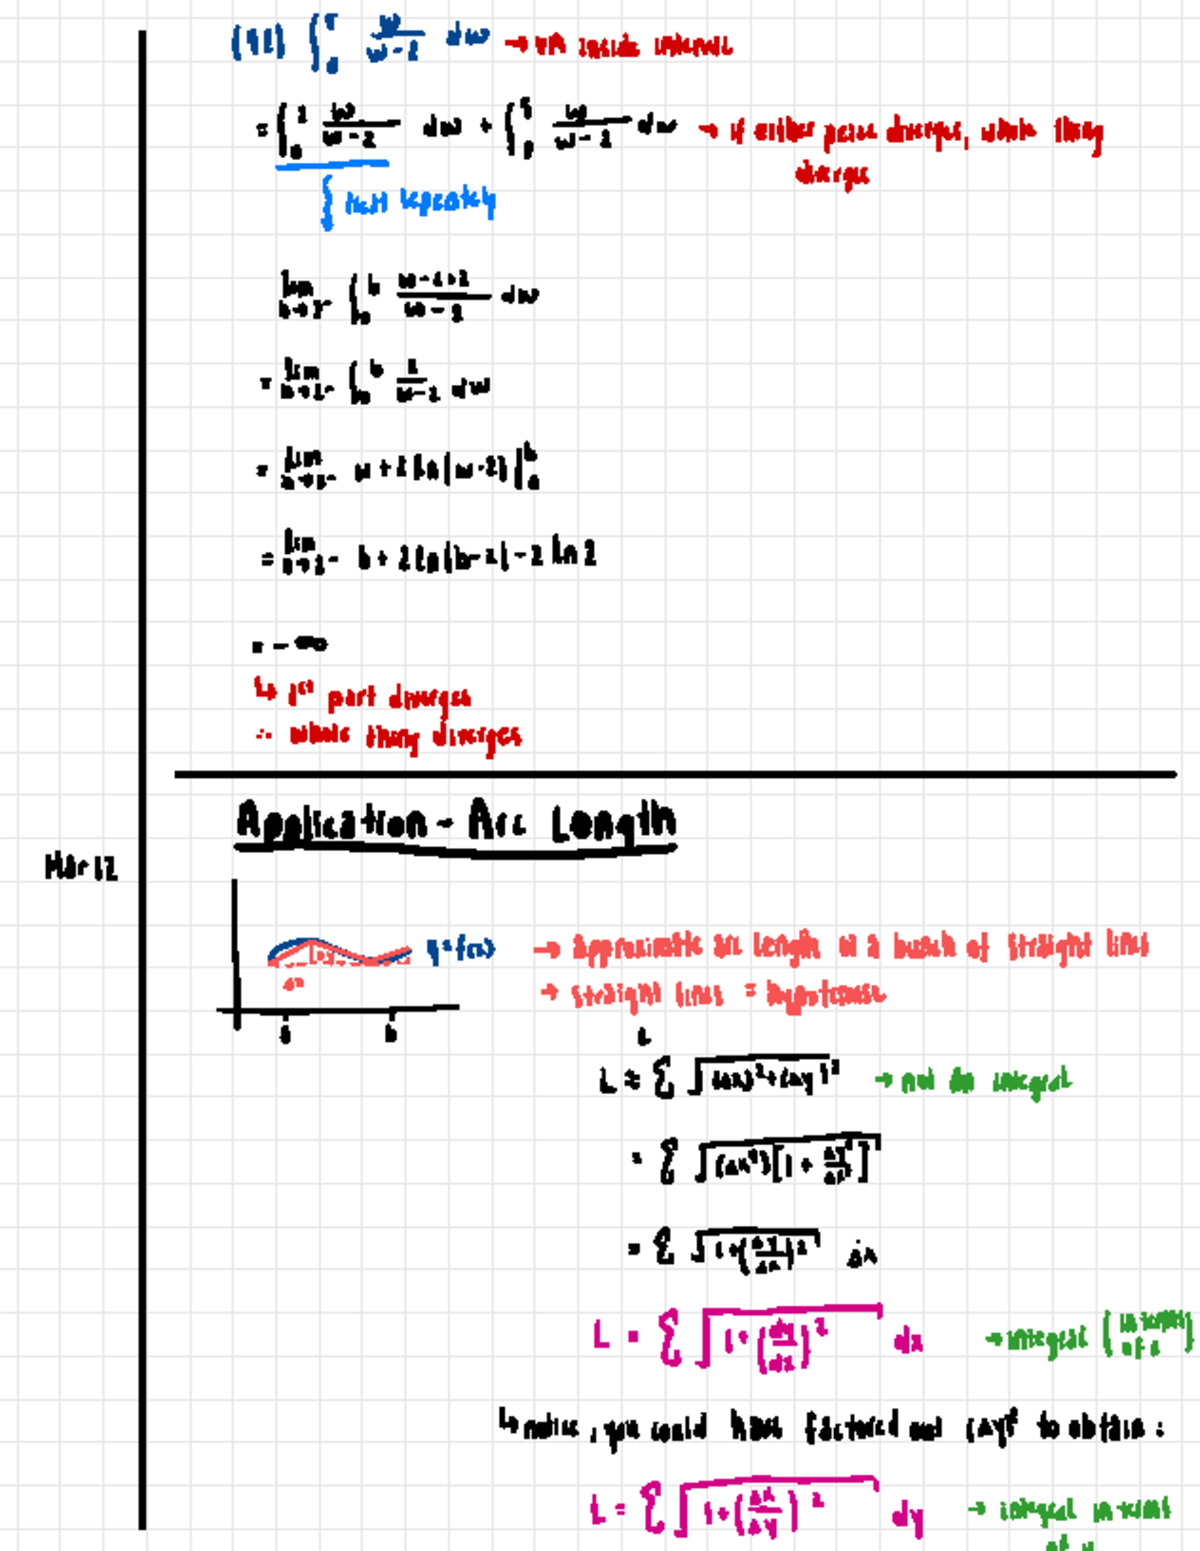 ∫ w/(w-2) dw → VA inside interval
= ∫₀² w/(w-2) dw + ∫ w/(w-2) dw → if either peice diverges, whole thing
diverges
lim b→2⁻ ∫₀ᵇ (w-2+2)/(w-2) dw
= lim b→2⁻ ∫₀ᵇ 2/(w-2) dw
= lim b→2⁻ w+2 ln|w-2| |₀ᵇ
= lim b→2⁻ b+2 ln|b-2| - 2 ln 2
= -∞
↳ 1st part diverges
∴ whole thing diverges
Application - Arc Length
Mar 12
y=f(x) → Approximate arc length w a bunch of straight lines
Δx → straight lines = hypotenuse
a b
L ≈ Σ √((Δx)²+(Δy)²) → not an integral
= Σ √((Δx²)[1 + Δy²/Δx²])
= Σ √(1+(Δy/Δx)²) Δx
L = ∫ √(1+(dy/dx)²) dx → integral (in terms of x)
↳ notice, you could have factored out (Δy)² to obtain:
L = ∫ √(1+(Δx/Δy)²) dy → integral in terms
of y